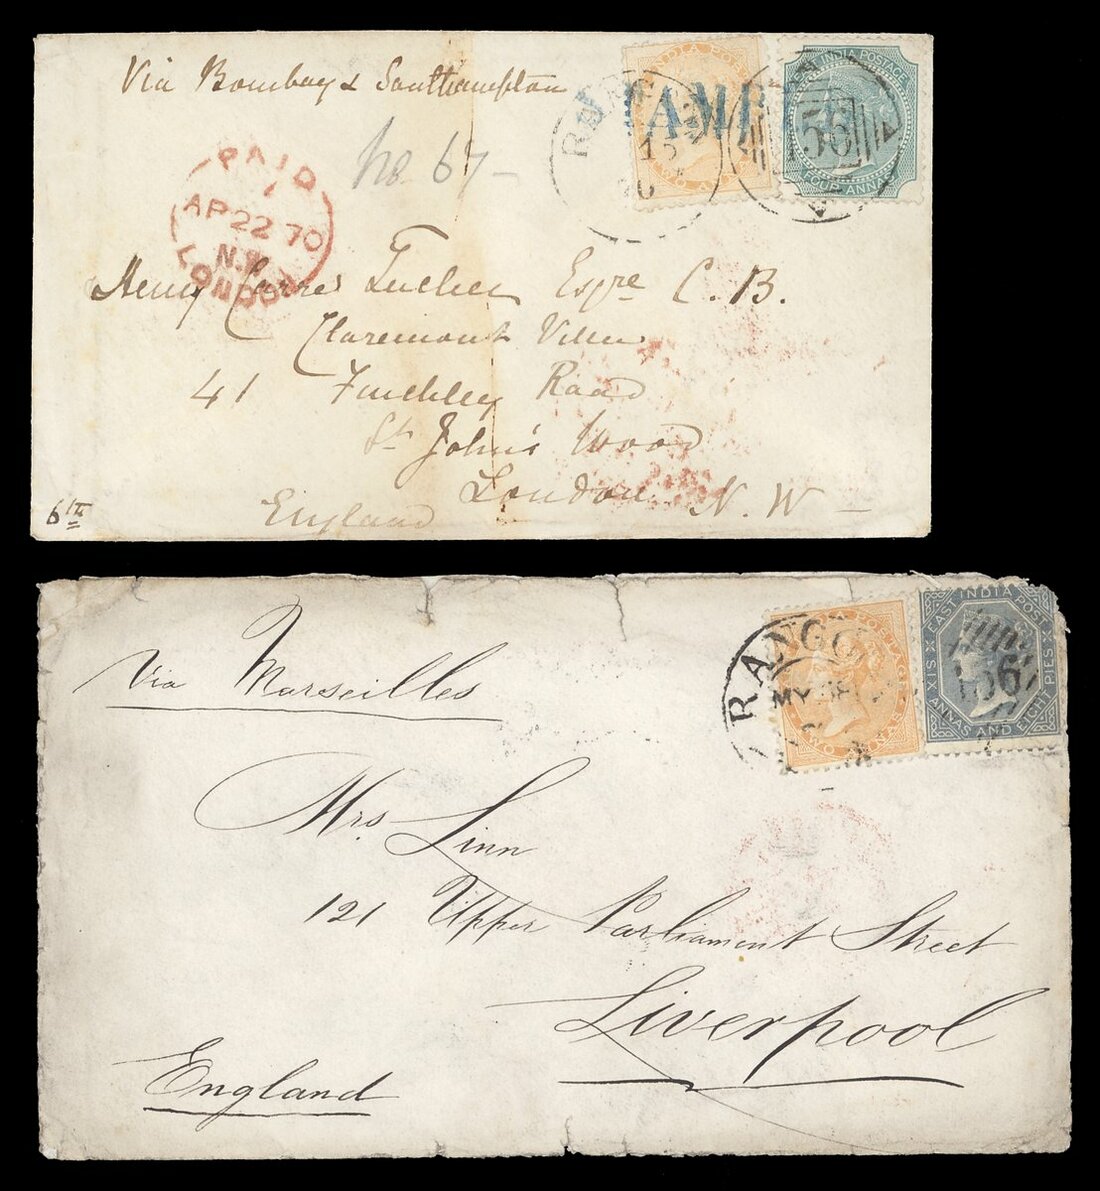 Via Bombay & Southampton
No. 67
PAID
AP 22 70
LONDON
Henry Carre Tucker Esqre C.B.
Claremont Villa
41 Finchley Road
St John's Wood
London N.W
England
6th
INDIA POSTAGE
TWO ANNAS
EAST INDIA POSTAGE
FOUR ANNAS
156
Via Marseilles
RANGOON
MY
TWO ANNAS
EAST INDIA POSTAGE
SIX ANNAS AND EIGHT PIES
156
Mrs Linn
121 Upper Parliament Street
Liverpool
England